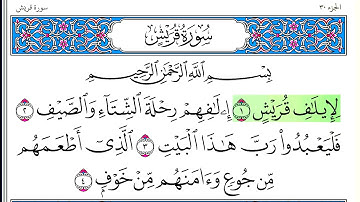 الجزء ٣٠
سورة قريش
سُورَةُ قُرَيْشٍ
بِسْمِ ٱللَّهِ ٱلرَّحْمَٰنِ ٱلرَّحِيمِ
لِإِيلَٰفِ قُرَيْشٍ ١ إِۦلَٰفِهِمْ رِحْلَةَ ٱلشِّتَآءِ وَٱلصَّيْفِ ٢
فَلْيَعْبُدُوا۟ رَبَّ هَٰذَا ٱلْبَيْتِ ٣ ٱلَّذِىٓ أَطْعَمَهُم
مِّن جُوعٍ وَءَامَنَهُم مِّنْ خَوْفٍۭ ٤